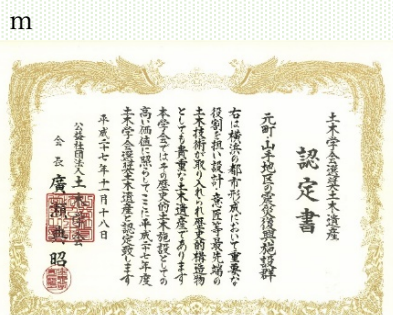 m
土木学会選奨土木遺産
認定書
元町・山手地区の震災復興施設群
右は横浜の都市形成において重要な
役割を担い設計・意匠等最先端の
土木技術が取り入れられ歴史的構造物
としても貴重な土木遺産であります
本学会ではその歴史的土木施設としての
高い価値に照らしてここに平成二十七年度
土木学会選奨土木遺産と認定致します
平成二十七年十一月十八日
公益社団法人土木学会
会長 廣瀬典昭